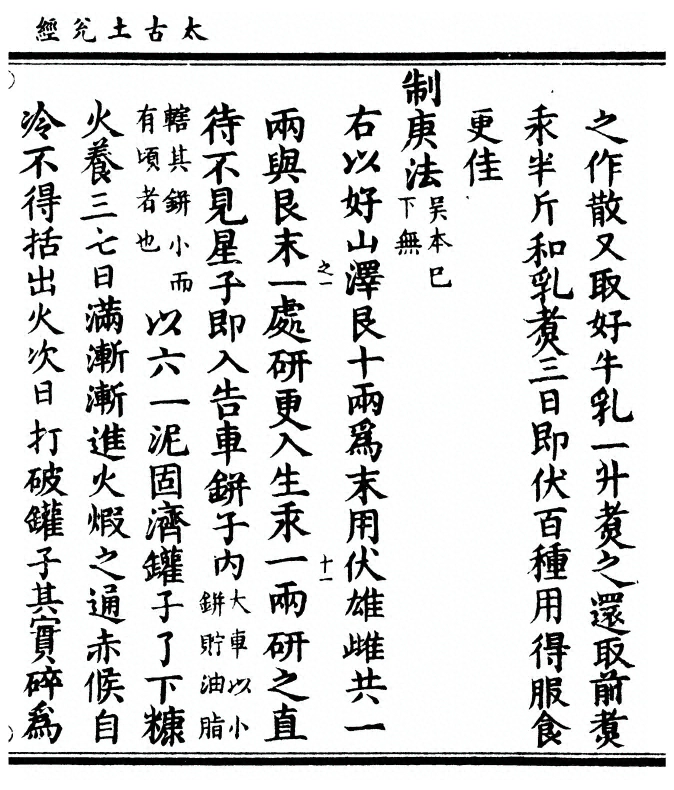 太古土兊經
之作散又取好牛乳一升煑之還取前煑
汞半斤和乳煑三日即伏百種用得服食
更佳
制庚法吴本巳下無
右以好山澤艮十兩爲末用伏雄雌共一
之一 十一
兩與艮末一處研更入生汞一兩研之直
待不見星子即入告車鉼子内大車以小鉼貯油脂
轄其鉼小而有頃者也以六一泥固濟罐子了下糠
火養三七日滿漸漸進火煆之通赤候自
冷不得括出火次日打破罐子其實碎爲